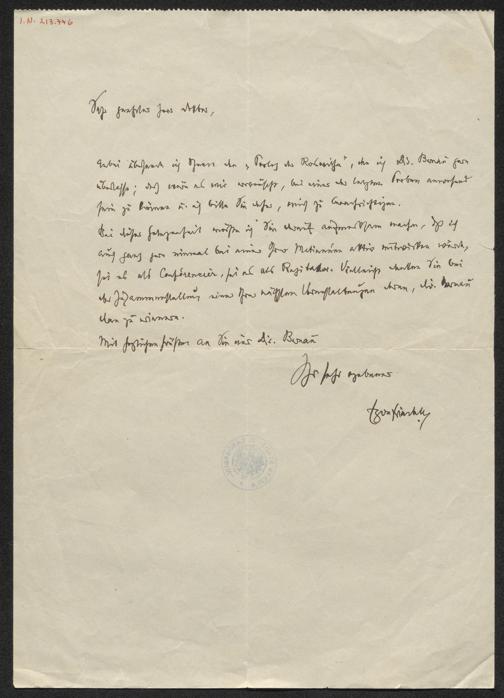 I.N. 213.746
Sehr geehrter Herr Doktor,
anbei übersende ich Ihnen den „Prolog des", den ich Dir. Bernau gern
überlasse; doch wäre es mir erwünscht, bei einer der letzten Proben anwesend
sein zu können u. ich bitte Sie daher, mich zu benachrichtigen.
Bei dieser Gelegenheit möchte ich Sie darauf aufmerksam machen, daß ich
auch ganz gern einmal bei einer Ihrer Matineen aktiv mitwirken würde,
sei es als Conférencier, sei es als Rezitator. Vielleicht denken Sie bei
der Zusammenstellung einer Ihrer nächsten Veranstaltungen daran, Dir. Bernau
daran zu erinnern.
Mit herzlichen Grüßen an Sie und Dir. Bernau
Ihr sehr ergebener
Egon Friedell